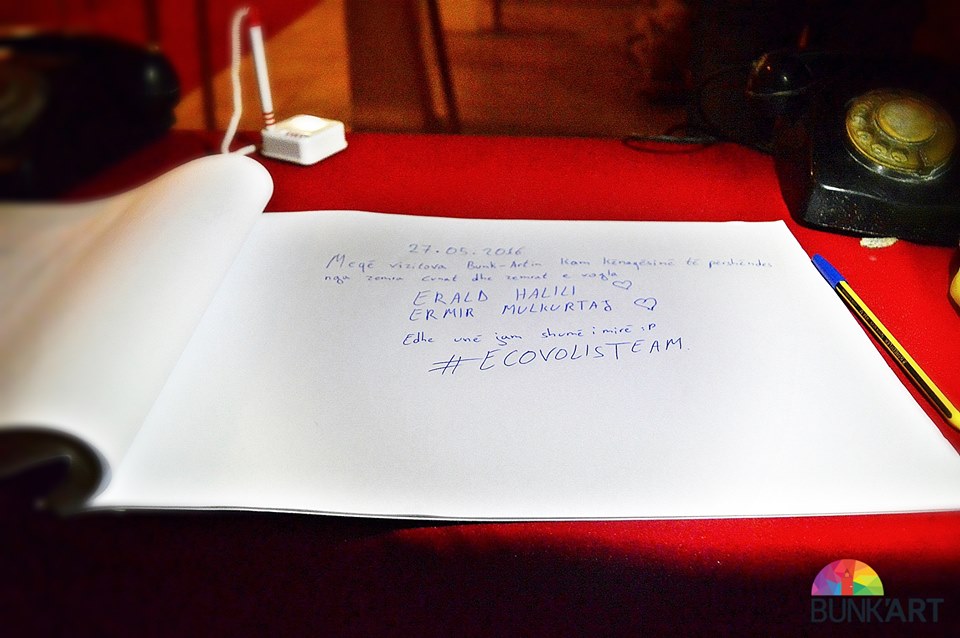 27.05.2016
Meqë vizitova Bunk-Artin kam kënaqësinë të përshëndes
nga zemra dhe zemrat e vogla
ERALD HALILI
ERMIR MULKURTAJ
Edhe unë jam shumë i mirë :P
#ECOVOLISTEAM.
BUNK'ART